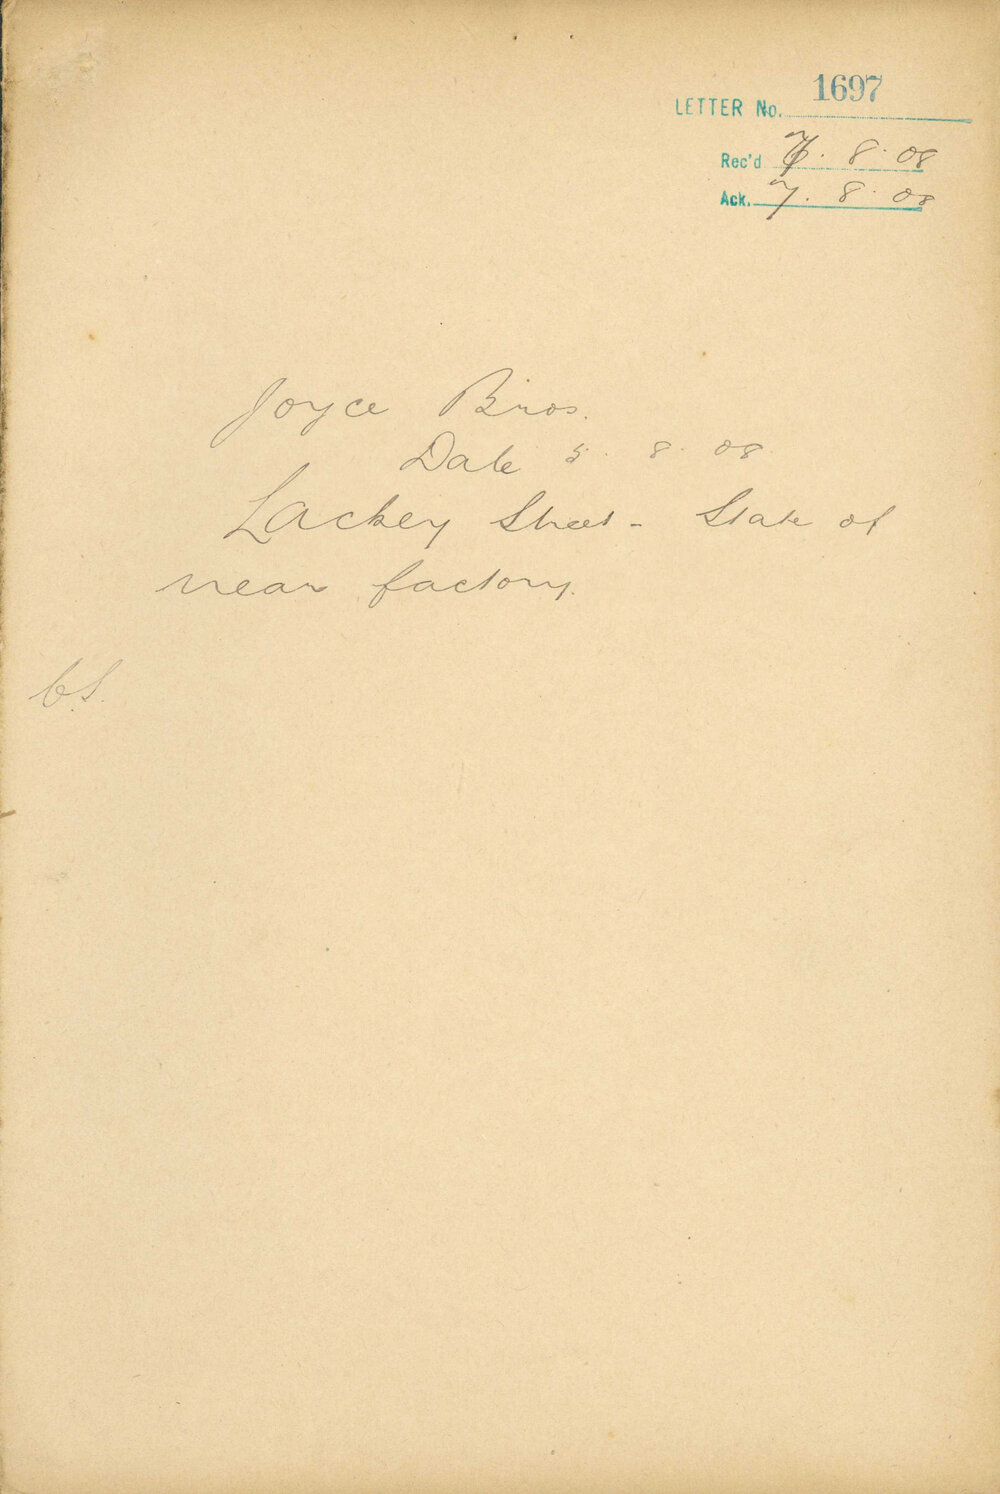 LETTER No. 1697
Rec'd 7. 8. 08
Ack. 7. 8. 08
Joyce Bros.
Date 5. 8. 08.
Lackey Street - State of
near factory.